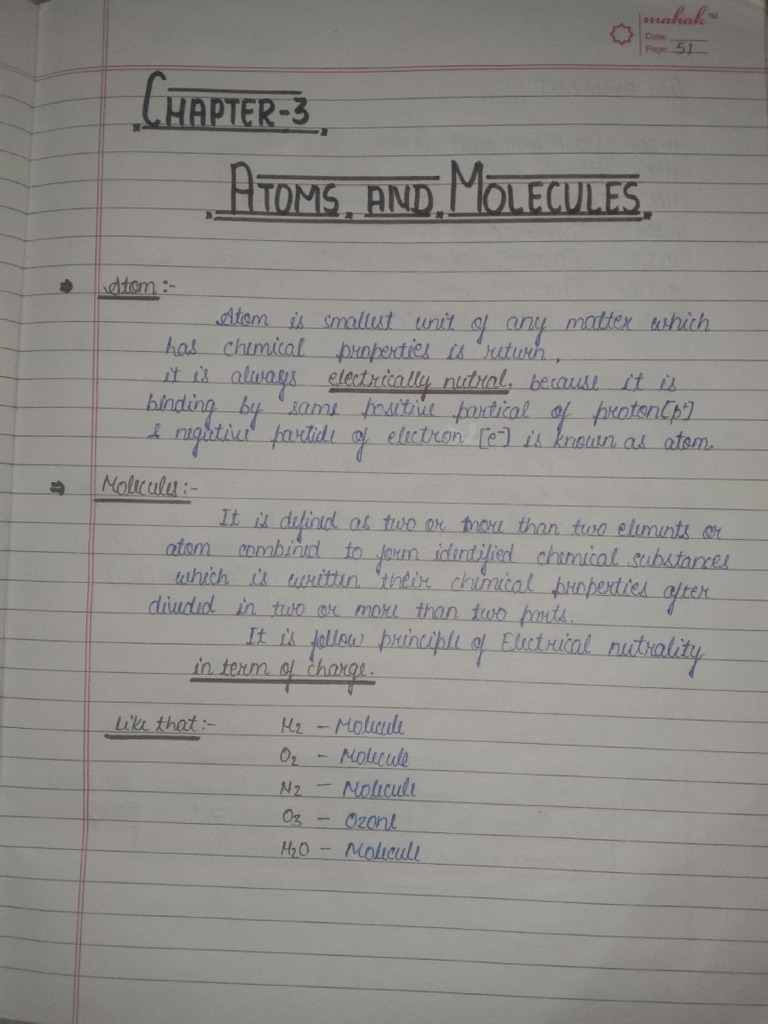 mahak™
Date:
Page: 51
CHAPTER-3
ATOMS AND MOLECULES
⇒ Atom :-
Atom is smallest unit of any matter which
has chemical properties is return.
it is always electrically nutral, because it is
binding by same positive partical of proton[p+]
& negative particle of electron [e-] is known as atom.
⇒ Molecules :-
It is defined as two or more than two elements or
atom combined to form identified chemical substances
which is written their chemical properties after
divided in two or more than two parts.
It is follow principle of Electrical nutrality
in term of charge.
Like that :- H2 - Molecule
O2 - Molecule
N2 - Molecule
O3 - Ozone
H2O - Molecule